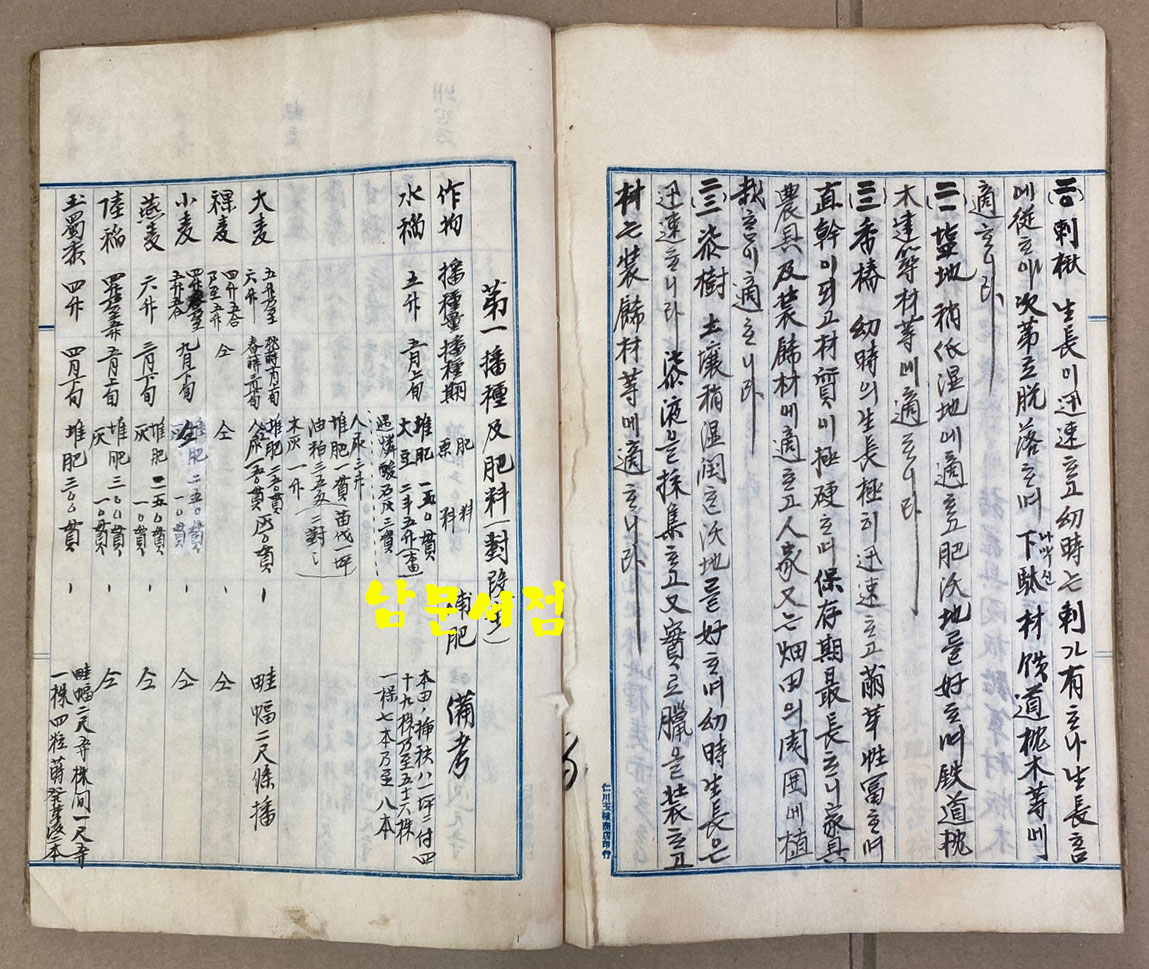 (三)刺楸 生長이迅速ᄒᆞ고幼時는刺가有ᄒᆞ나生長홈
에從ᄒᆞ야次第로脫落ᄒᆞ며下駄材鉄道枕木等에
나막신
適ᄒᆞ니라
(二)塩地稍低湿地에適ᄒᆞ고肥沃地를好ᄒᆞ며鉄道枕
木建築材等에適ᄒᆞ니라
(三)香椿 幼時의生長極히迅速ᄒᆞ고萠芽性富ᄒᆞ며
直幹이되고材質이極硬ᄒᆞ며保存期最長ᄒᆞ니家具
農具及装餙材에適ᄒᆞ고人家又는畑田의周囲에植
栽홈이適ᄒᆞ니라
(三)漆樹 土壤稍湿潤ᄒᆞᆫ沃地를好ᄒᆞ며幼時生長은
迅速ᄒᆞ니라 漆液을採集ᄒᆞ고又實로臘을装ᄒᆞ고
材는装餙材等에適ᄒᆞ니라
仁川玉積商店印行
第一播種及肥料(對段步)
作物 播種量 播種期 肥料 原料 補肥 備考
水稲 五升 五月上旬 堆肥 一五〇貫
大豆 二斗五升
過燐酸石灰三貫
本田ノ挿秧八一坪ニ付四
十九株乃至五十六株
一株七本乃至八本
人尿三斗
堆肥一貫苗代一坪
油粕三五匁ニ對シ
木灰一升
大麦 五升乃至六升 秋蒔 堆肥二五〇貫 畦幅二尺條播
裸麦 四升五合乃至五升 仝 仝 仝
小麦 九月下旬 堆肥二五〇貫 仝
燕麦 六升 三月下旬 堆肥二五〇貫 灰一〇貫 仝
陸稲 五月上旬 堆肥三〇〇貫 灰一〇貫 仝
玉蜀黍 四升 四月下旬 堆肥三〇〇貫 畦幅二尺五寸株間一尺五寸
一株四粒蒔發芽後二本
남문서점